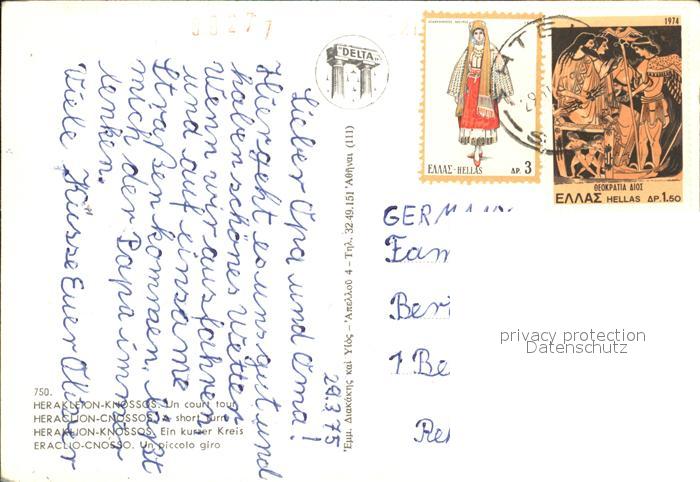 00277
Lieber Opa und Oma!
Hier geht es uns gut und
haben schönes Wetter
Wenn wir ausfahren
und auf einsame
Straßen kommen, läßt
mich der Papa immer
lenken.
Viele Küsse Euer Oliver
29.3.75
DELTA
Ἐμμ. Διακάκης καὶ Υἱός – Ἀπελλοῦ 4 – Τηλ. 32.49.151 Ἀθῆναι (111)
ΕΛΛΑΣ-HELLAS ΔΡ. 3
1974
ΘΕΟΚΡΑΤΙΑ ΔΙΟΣ
ΕΛΛΑΣ HELLAS ΔΡ.1.50
GERMANY
Fam
Berl
1 Be
privacy protection
Datenschutz
750.
HERAKLEION-KNOSSOS. Un court tour
HERACLION-CNOSSOS. A short turn
HERAKLION-KNOSSOS. Ein kurzer Kreis
ERACLIO-CNOSSO. Un piccolo giro